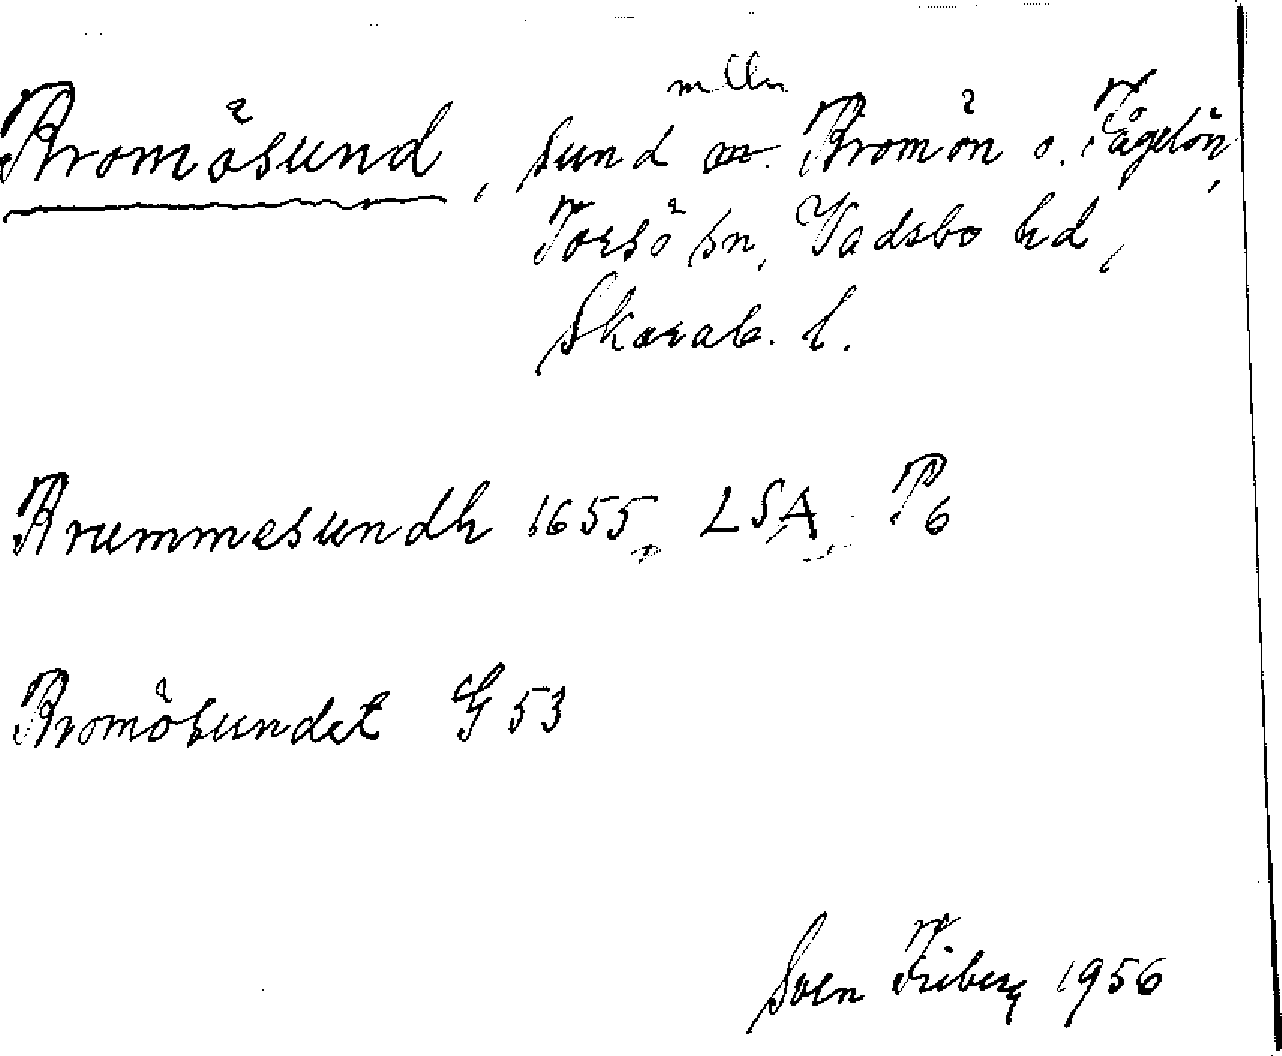 mlln
Bromösund, sund m. Bromön o. Fågelön,
Torsö sn, Vadsbo hd,
Skarab. l.
Brummesundh 1655 LSA P6
Bromösundet G 53
Sven Friberg 1956